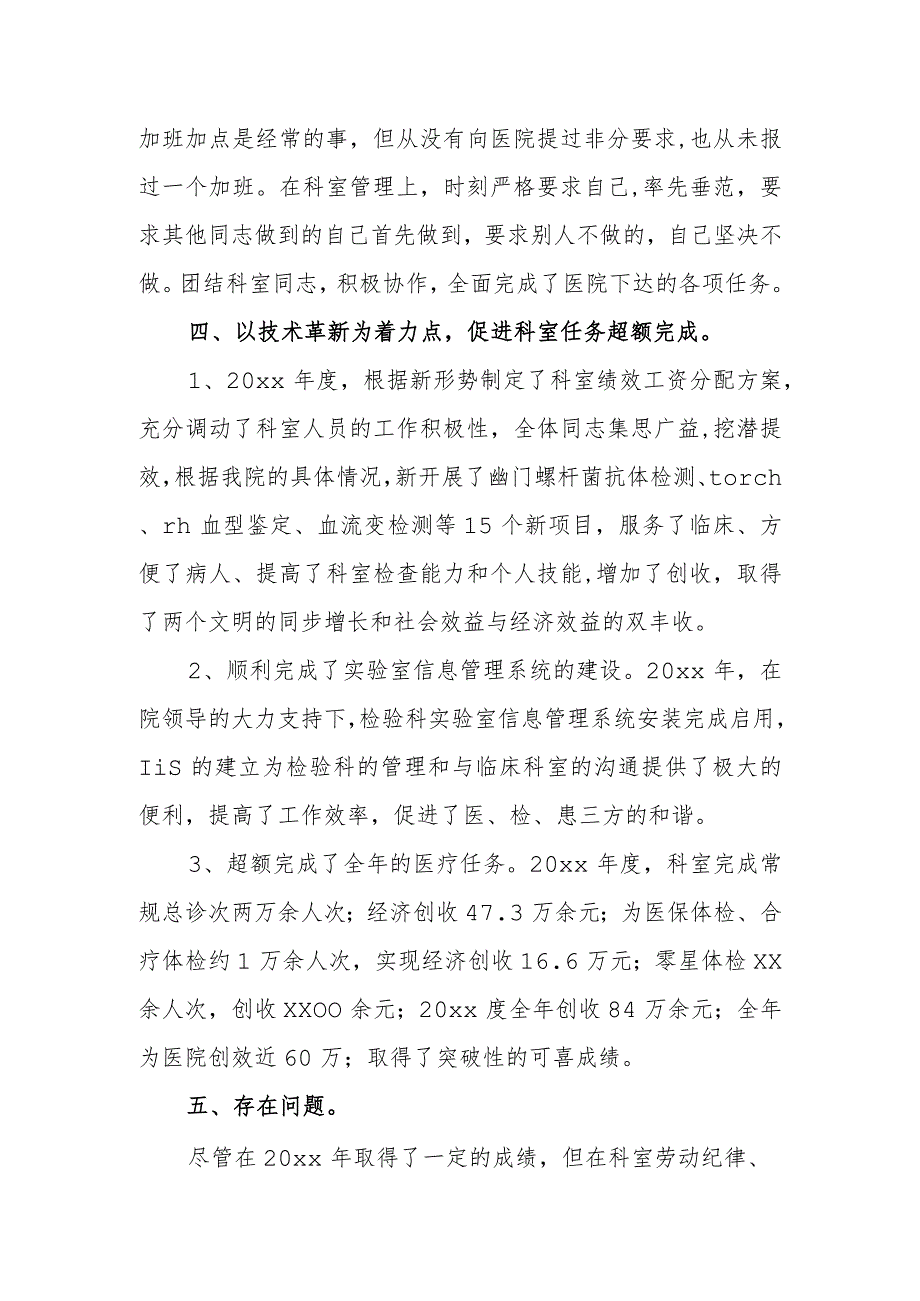 加班加点是经常的事，但从没有向医院提过非分要求,也从未报
过一个加班。在科室管理上，时刻严格要求自己,率先垂范，要
求其他同志做到的自己首先做到，要求别人不做的，自己坚决不
做。团结科室同志，积极协作，全面完成了医院下达的各项任务。
四、以技术革新为着力点，促进科室任务超额完成。
1、20xx 年度，根据新形势制定了科室绩效工资分配方案，
充分调动了科室人员的工作积极性，全体同志集思广益,挖潜提
效,根据我院的具体情况,新开展了幽门螺杆菌抗体检测、torch
、rh 血型鉴定、血流变检测等 15 个新项目，服务了临床、方
便了病人、提高了科室检查能力和个人技能,增加了创收，取得
了两个文明的同步增长和社会效益与经济效益的双丰收。
2、顺利完成了实验室信息管理系统的建设。20xx 年，在
院领导的大力支持下,检验科实验室信息管理系统安装完成启用，
IiS 的建立为检验科的管理和与临床科室的沟通提供了极大的
便利，提高了工作效率，促进了医、检、患三方的和谐。
3、超额完成了全年的医疗任务。20xx 年度，科室完成常
规总诊次两万余人次；经济创收 47.3 万余元；为医保体检、合
疗体检约 1 万余人次，实现经济创收 16.6 万元；零星体检 XX
余人次，创收 XXOO 余元；20xx 度全年创收 84 万余元；全年
为医院创效近 60 万；取得了突破性的可喜成绩。
五、存在问题。
尽管在 20xx 年取得了一定的成绩，但在科室劳动纪律、